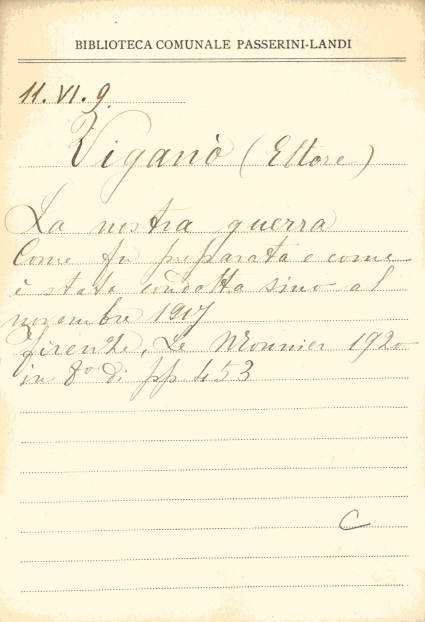 BIBLIOTECA COMUNALE PASSERINI-LANDI
11. VI. 9.
Viganò (Ettore)
La nostra guerra
Come fu preparata e come
è stata condotta sino al
novembre 1917
Firenze, Le Monnier 1920
in 8º di pp 453
C